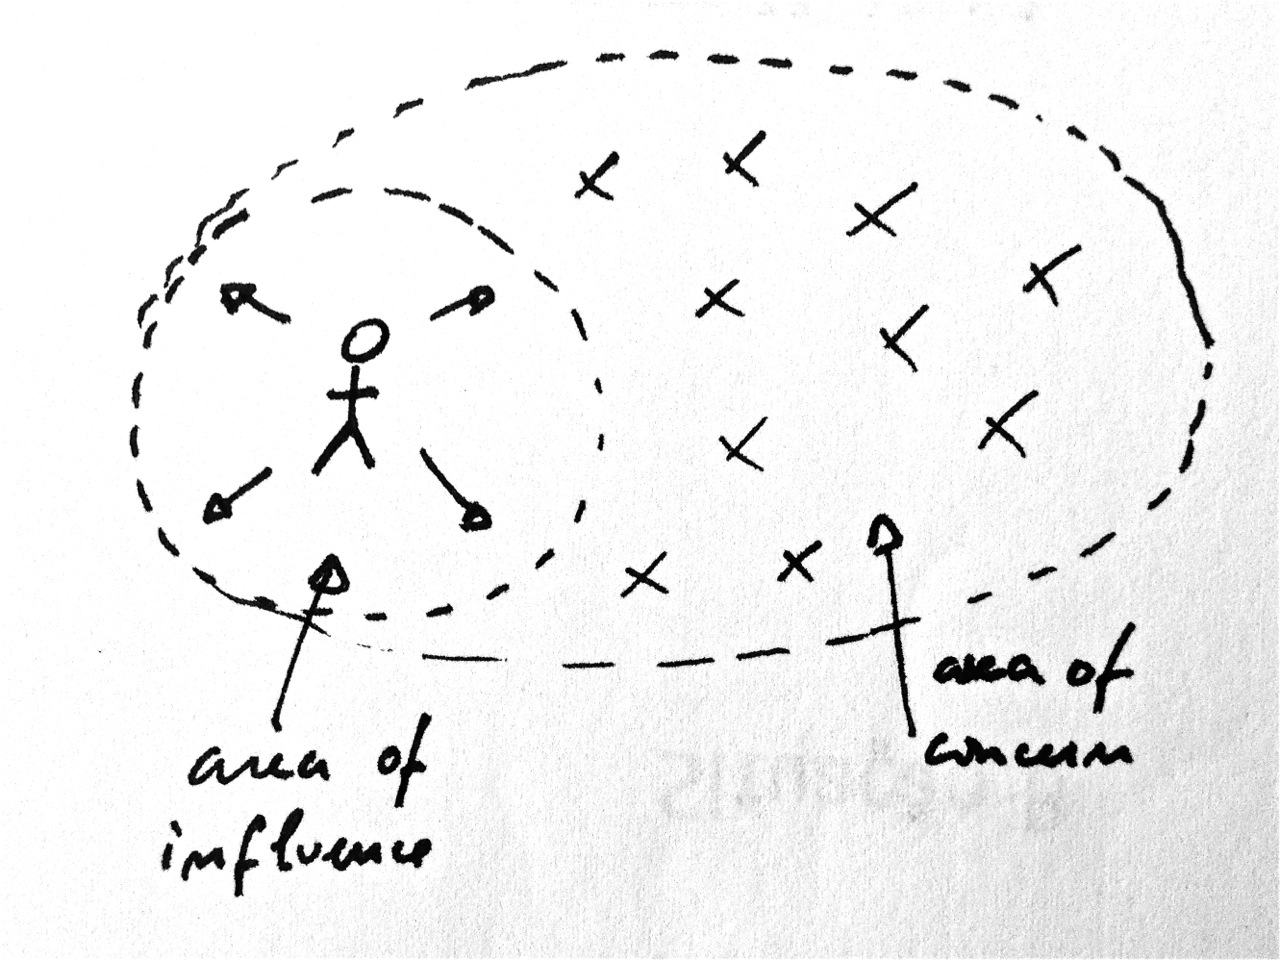 area of
influence
area of
concern